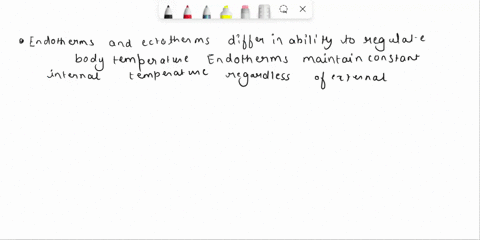 • Endotherms and ectotherms differ in ability to regulate
body temperature Endotherms maintain constant
internal temperature regardless of external